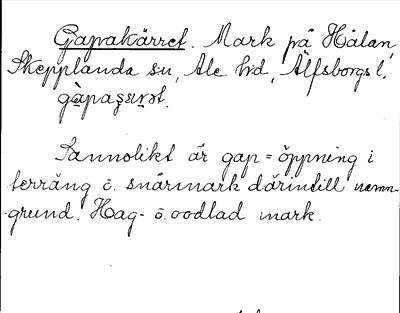 Gapakärret. Mark på Hålan,
Skepplanda sn, Ale hd, Älfsborgs l.
Sannolikt är gap = öppning i
terräng o. snärmark därintill namn-
grund. Hag- o. oodlad mark.